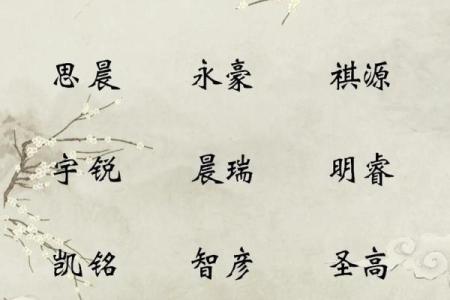 思晨 永豪 祺源
宇锐 晨瑞 明睿
凯铭 智彦 圣高